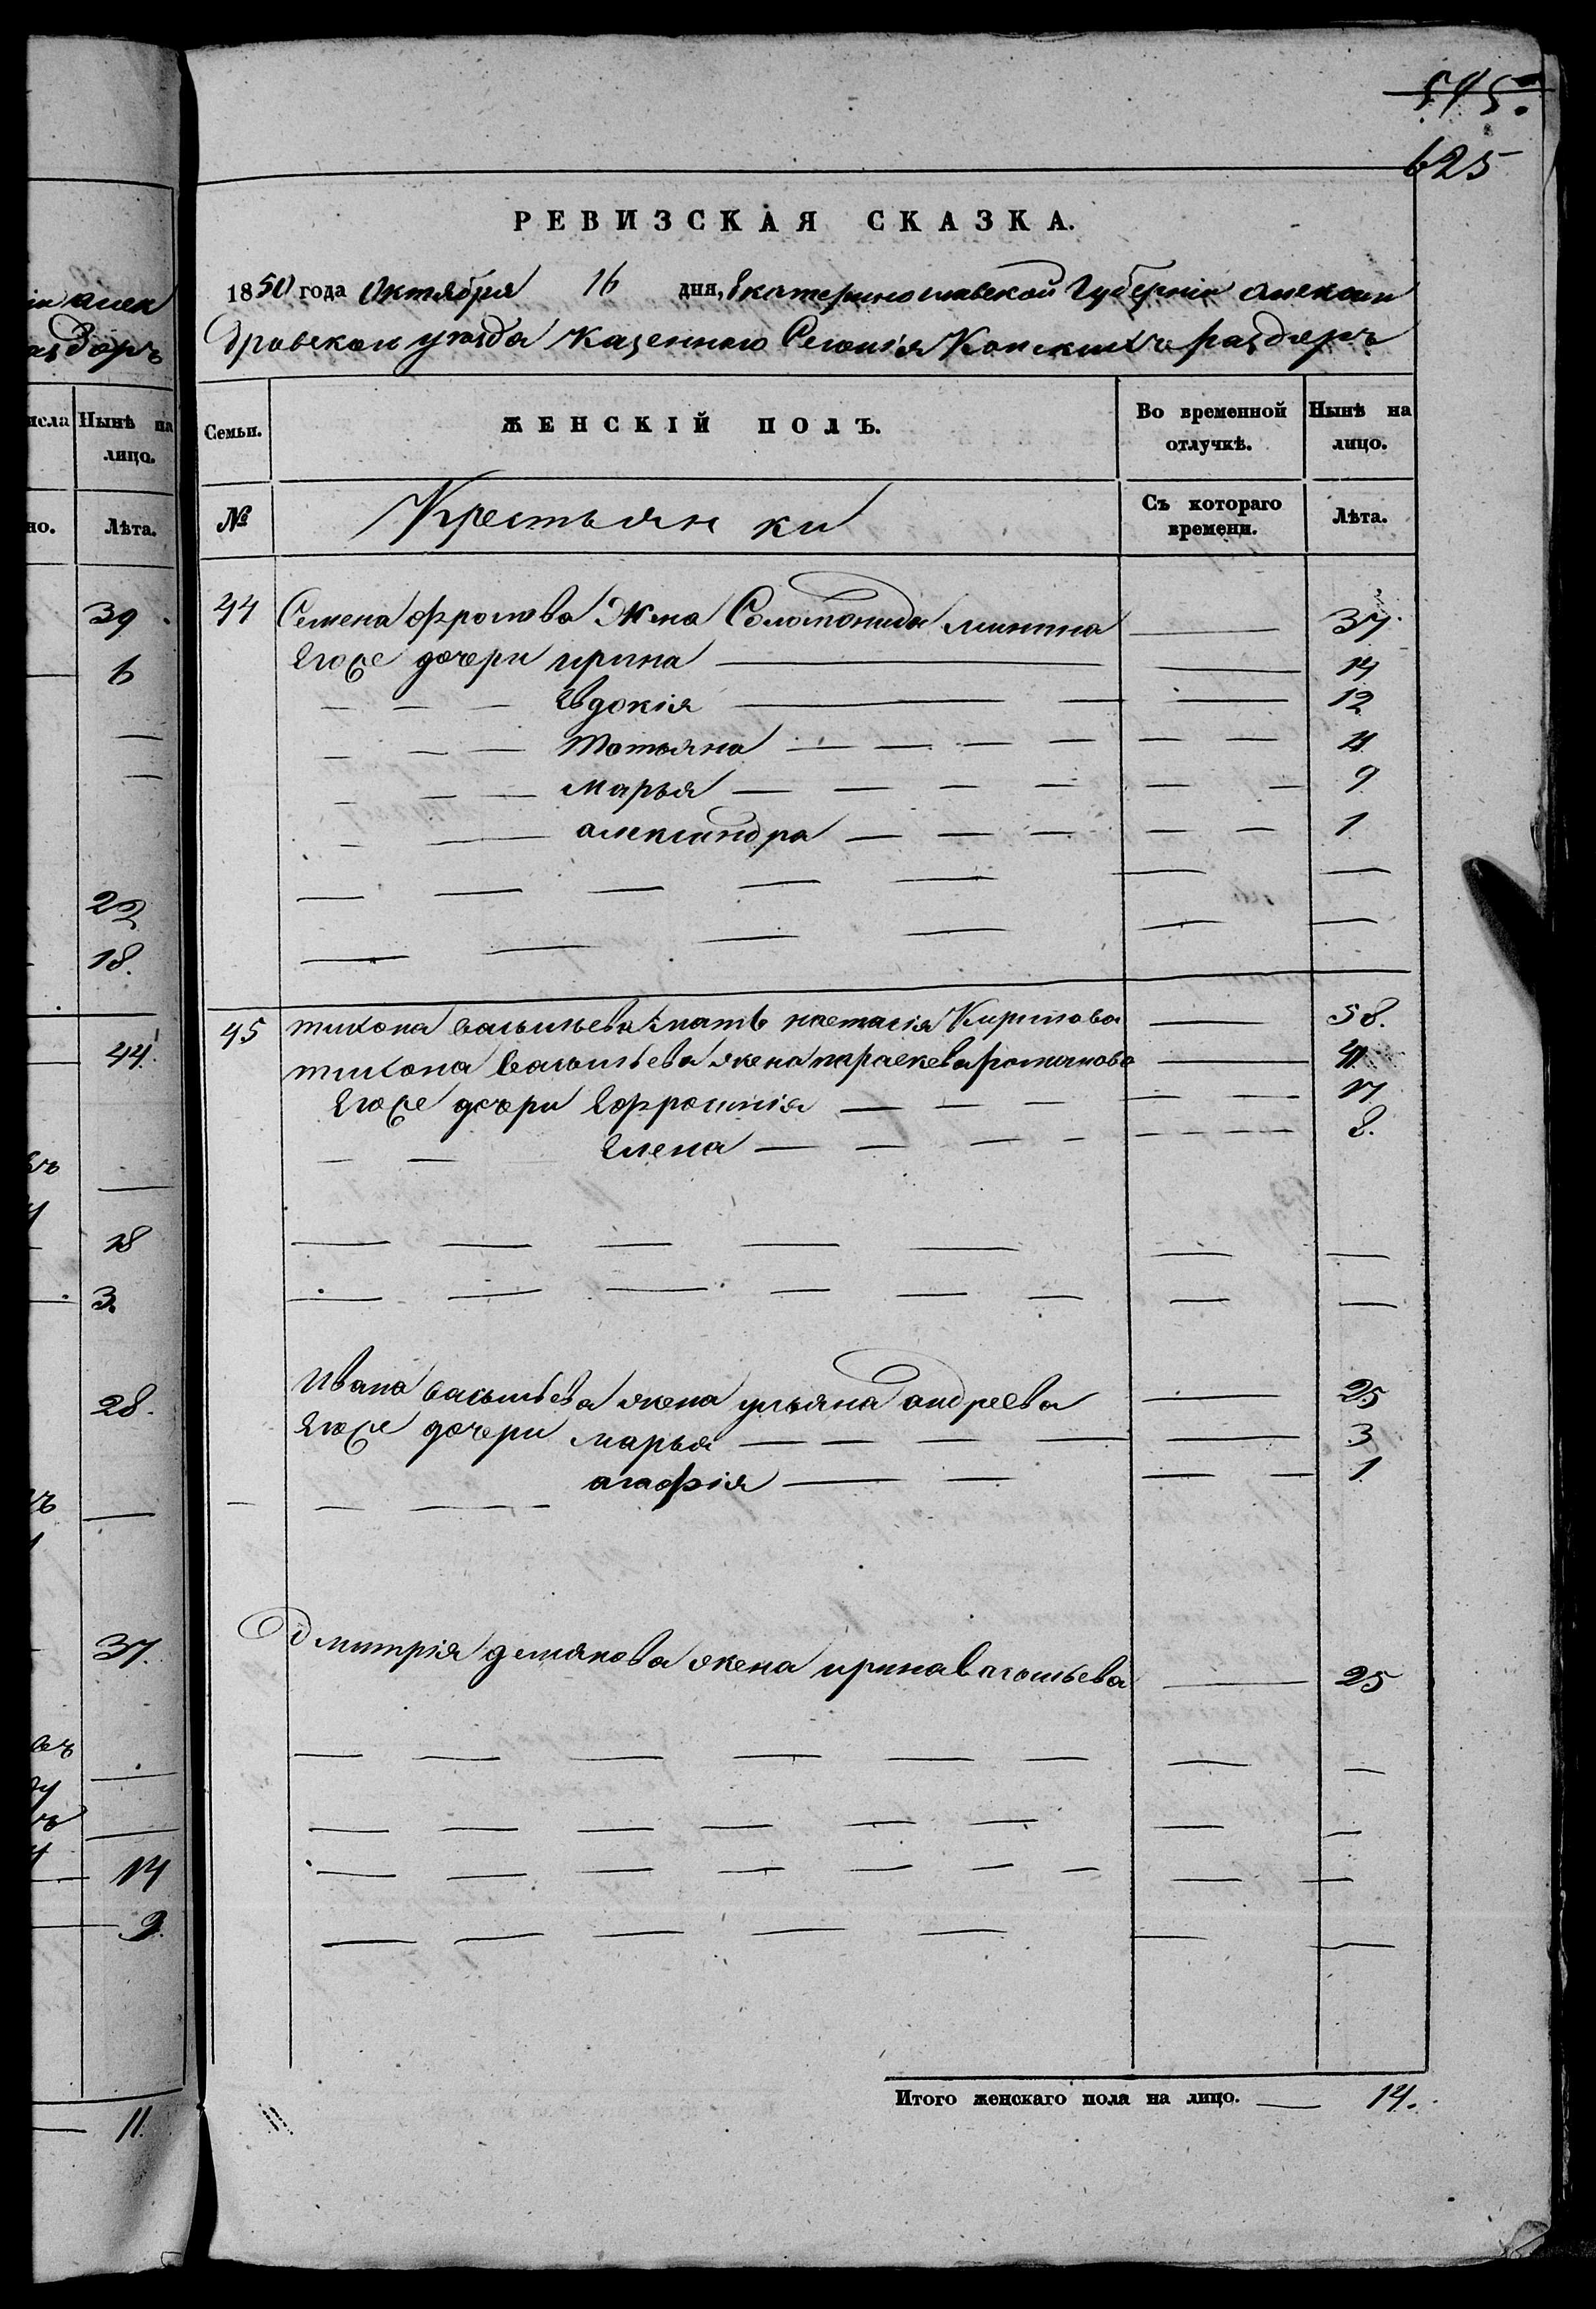 545.
625
РЕВИЗСКАЯ СКАЗКА.
1850 года Октября 16 дня, Екатеринославской Губерніи Алексан
дровскаго уезда Казенного Селенія Конскихъ раздоръ
Семьи.
ЖЕНСКІЙ ПОЛЪ.
Во временной отлучкѣ.
Нынѣ на лицо.
№
Крестьянки
Съ котораго времени.
Лѣта.
44 Семена Фролова Жена Соломонида Минина 37.
Егоже дочери Ирина 14
Евдокія 12
Татьяна 11
Марья 9
Александра 1
45 Тихона Васильева мать настасія Кирилова 58.
Тихона Васильева жена параскева романова 41
Егоже дочери Ефросинія 17
Елена 8.
Ивана Васильева жена ульяна андреева 25
Егоже дочери Марья 3
агафія 1
Дмитрія демянова жена ирина Васильева 25
Итого женскаго пола на лицо. 14.
Нынѣ на
лицо.
Лѣта.
39
6
22
18.
44.
18
3.
28.
37.
14
9.
11.